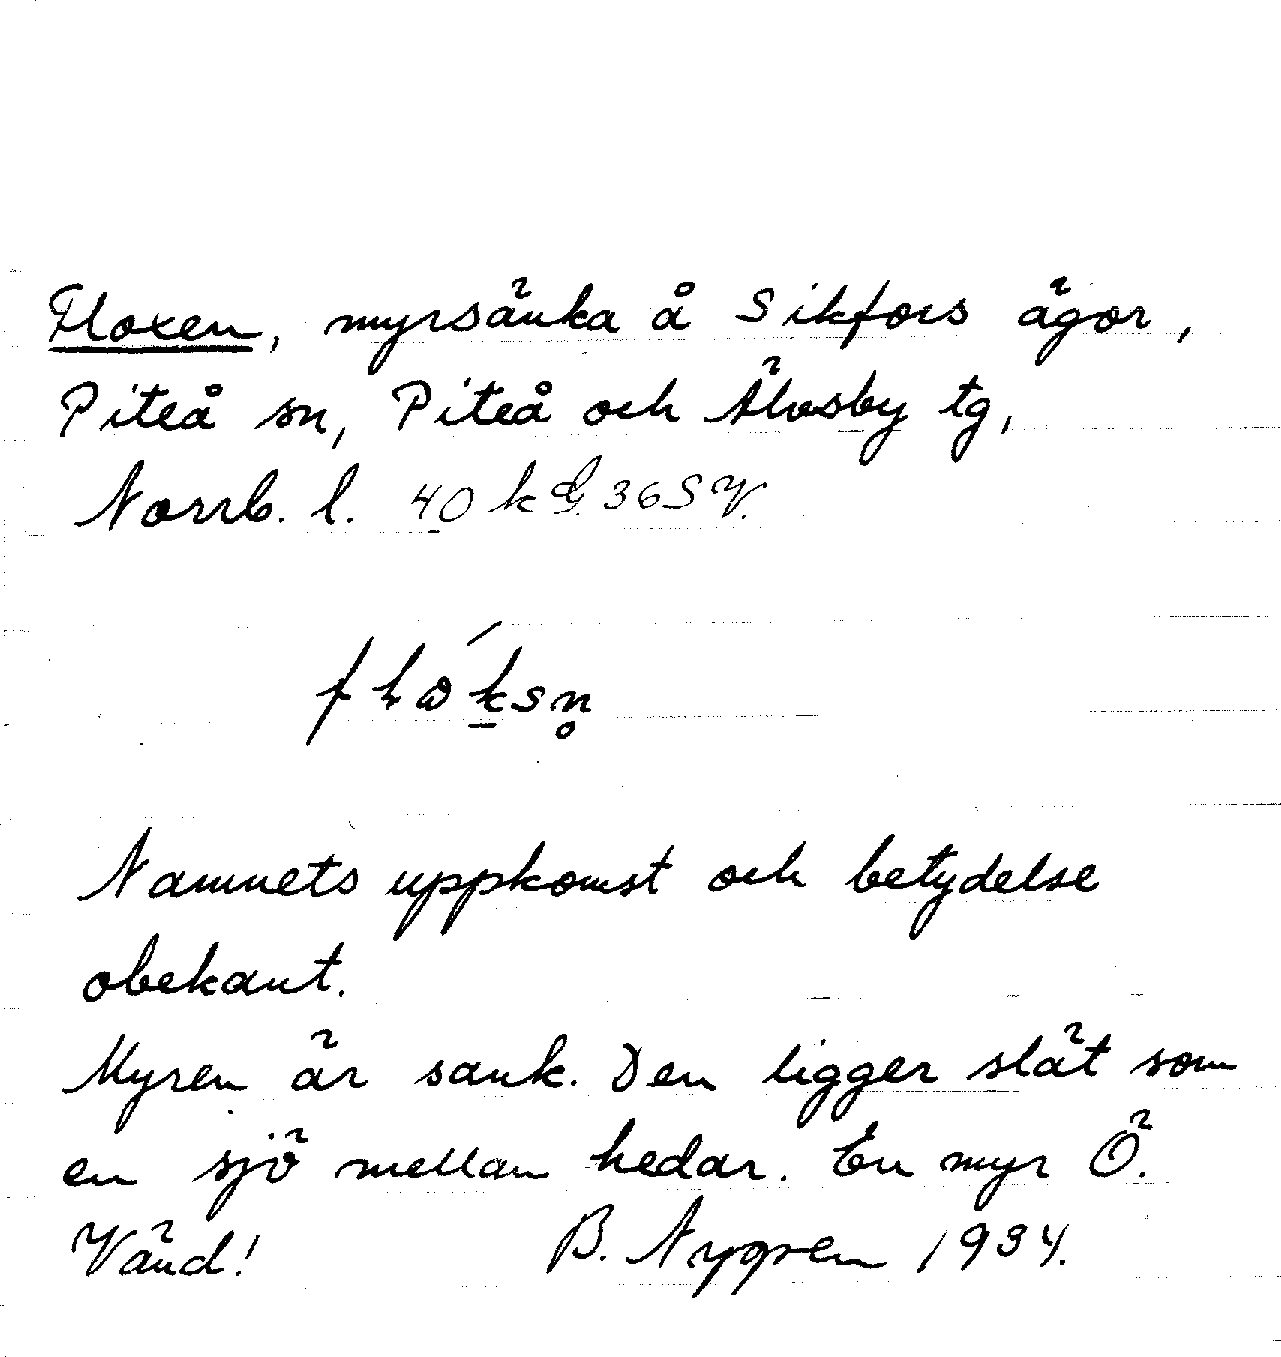 Floxen, myrsänka å Sikfors ägor,
Piteå sn, Piteå och Älvsby tg,
Norrb. l. 40 k G. 36 SV.
Namnets uppkomst och betydelse
obekant.
Myren är sank. Den ligger slät som
en sjö mellan hedar. En myr Ö.
Vänd! B. Nygren 1934.